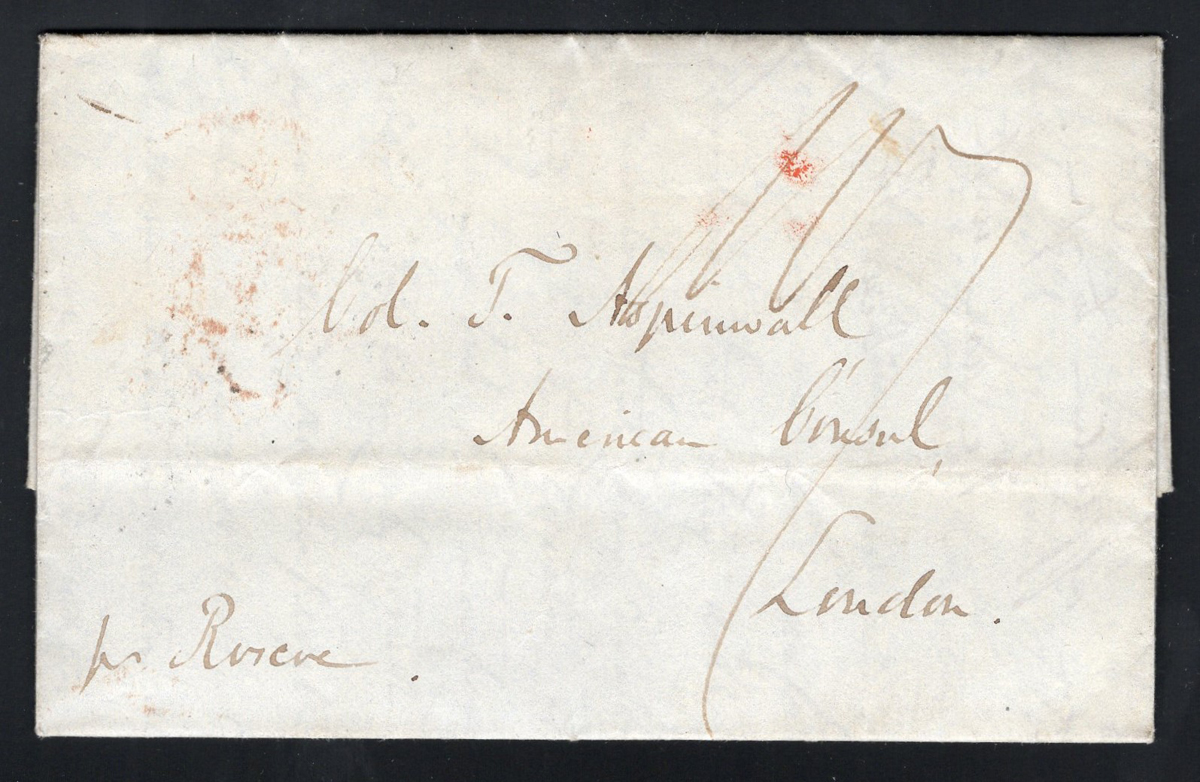 Col. T. Aspinwall
American Consul,
London.
pr Roscoe